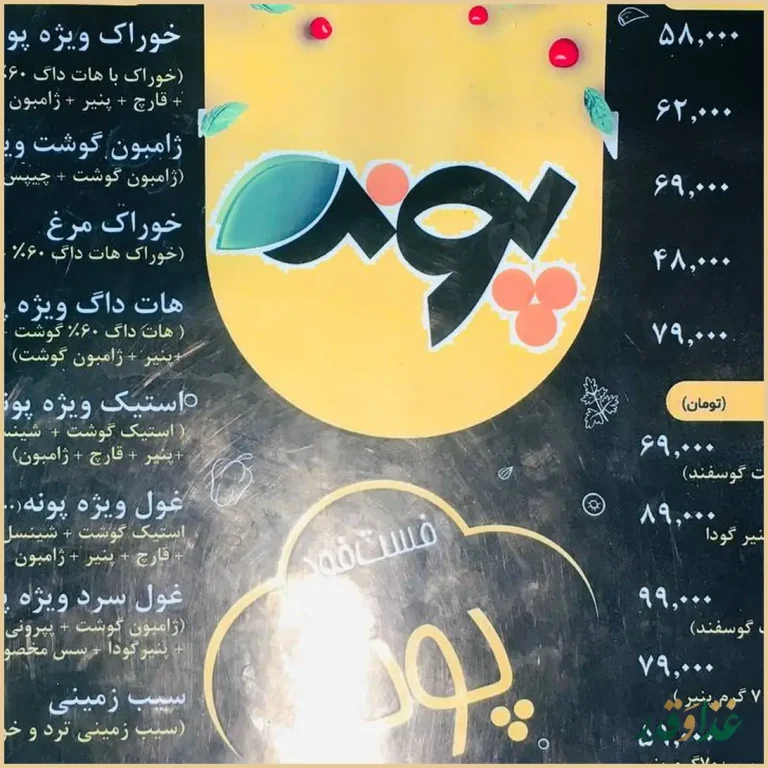 خوراک ویژه پو
(خوراک با هات داگ ۶۰٪
+ قارچ + پنیر + ژامبون
ژامبون گوشت وی
(ژامبون گوشت + چیپس
خوراک مرغ
(خوراک هات داگ ۶۰٪
هات داگ ویژه پ
( هات داگ ۶۰٪ گوشت +
+پنیر + ژامبون گوشت)
استیک ویژه پون
( استیک گوشت + شینس
+پنیر + قارچ + ژامبون)
غول ویژه پونه(..
استیک گوشت + شینسل
+ قارچ + پنیر + ژامبون
غول سرد ویژه پ
(ژامبون گوشت + پپرونی
+ پنیرگودا + سس مخصو
سیب زمینی
(سیب زمینی ترد و خو
پونه
فست فود
پونه
۵۸,۰۰۰
۶۲,۰۰۰
۶۹,۰۰۰
۴۸,۰۰۰
۷۹,۰۰۰
(تومان)
۶۹,۰۰۰
ت گوسفند)
۸۹,۰۰۰
نیر گودا
۹۹,۰۰۰
گوسفند)
۷۹,۰۰۰
۷ گرم پنیر )